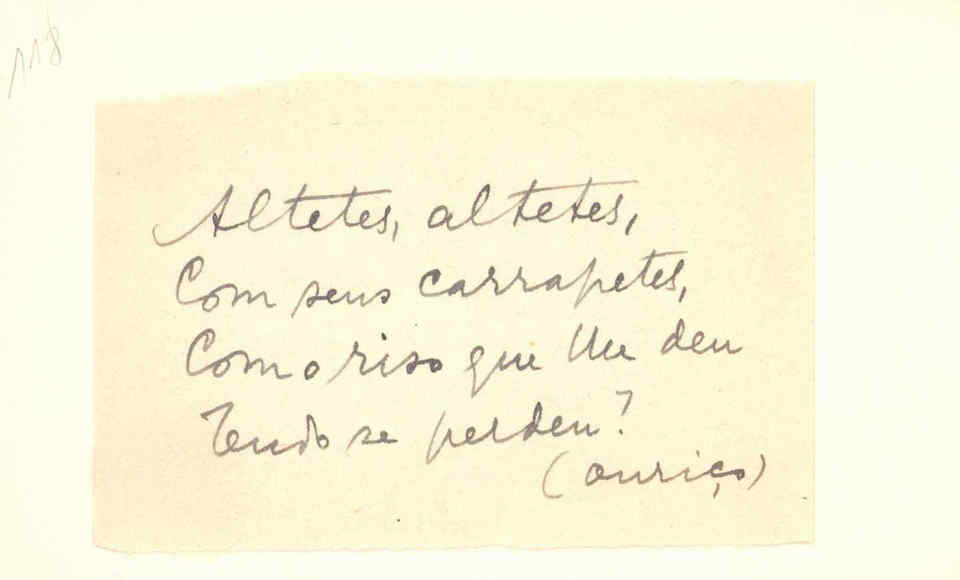 118
Altetes, altetes,
Com seus carrapetes,
Com o riso que lhe deu
Tendo se perdeu?
(ouriço)